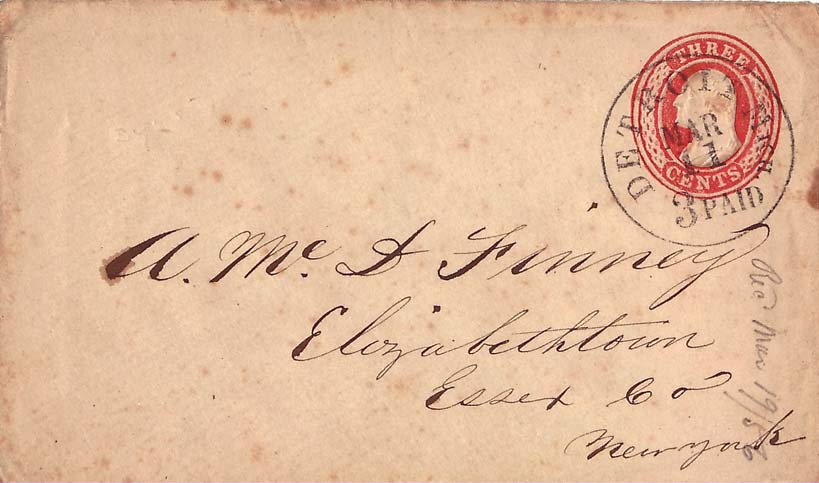 THREE
CENTS
DETROIT MICH.
MAR
11
3 PAID
A. McD Finney
Elizabethtown
Essex Co
New york
Rec Mar 19 56